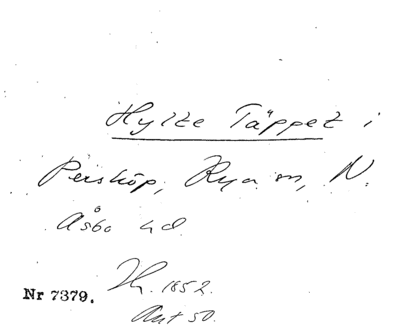 Hylte Täppet i
Perstöp, Rya sn, N.
Åsbo hd
Nr 7379. Hr. 1852.
Ant 50.